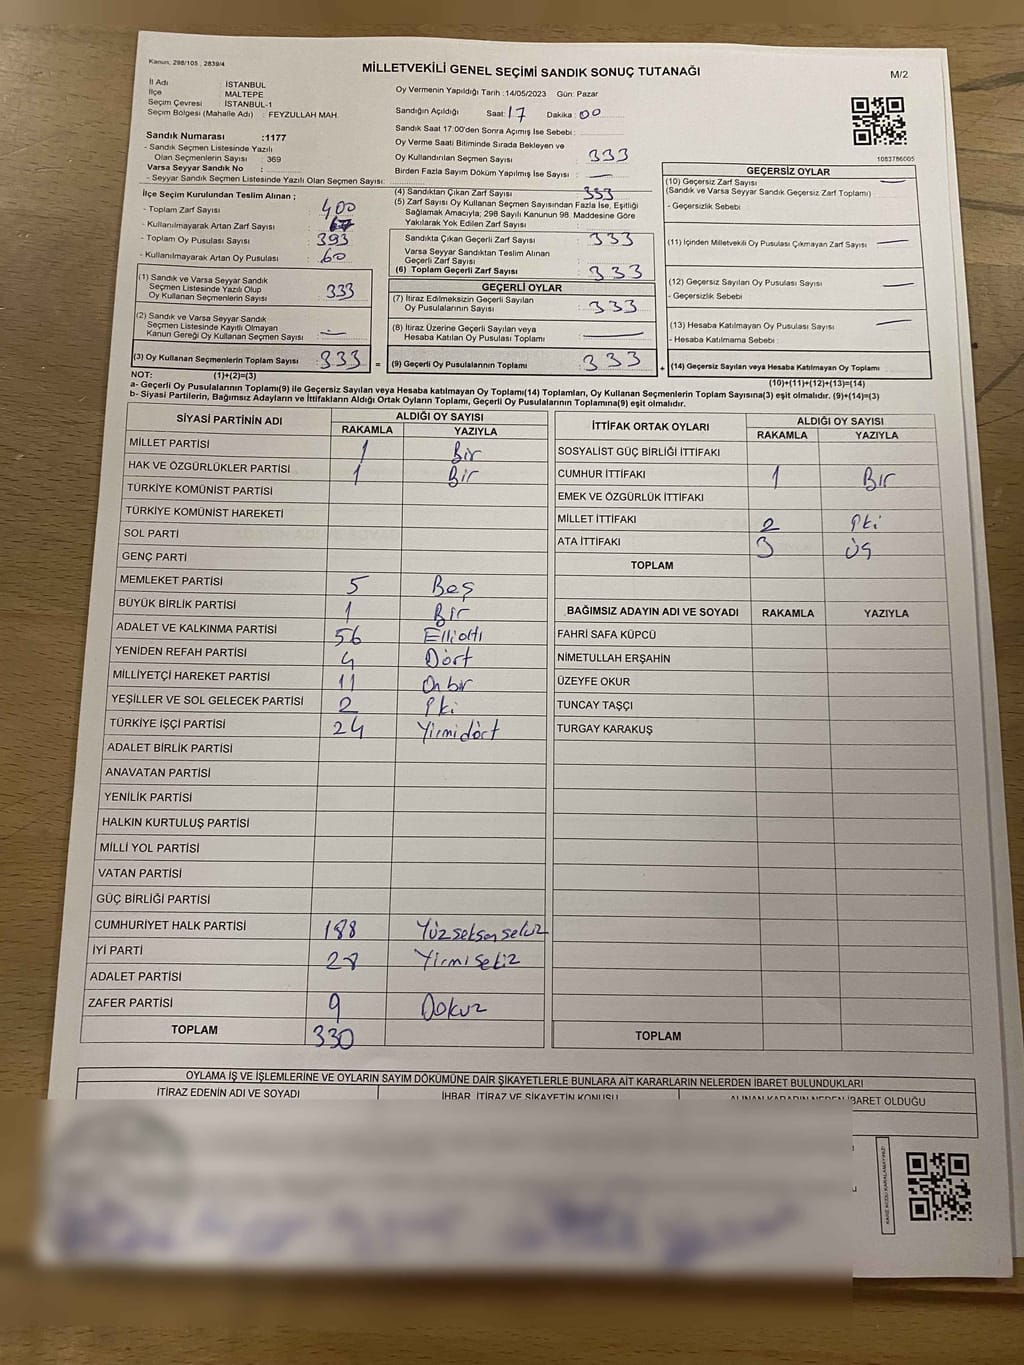 Kanun, 298/105 , 2839/4
MİLLETVEKİLİ GENEL SEÇİMİ SANDIK SONUÇ TUTANAĞI
M/2
İl Adı : İSTANBUL
İlçe : MALTEPE
Seçim Çevresi : İSTANBUL-1
Seçim Bölgesi (Mahalle Adı) : FEYZULLAH MAH.
Sandık Numarası :1177
- Sandık Seçmen Listesinde Yazılı
Olan Seçmenlerin Sayısı : 369
Varsa Seyyar Sandık No :
- Seyyar Sandık Seçmen Listesinde Yazılı Olan Seçmen Sayısı:
İlçe Seçim Kurulundan Teslim Alınan ;
- Toplam Zarf Sayısı : 400
- Kullanılmayarak Artan Zarf Sayısı :
- Toplam Oy Pusulası Sayısı : 393
- Kullanılmayarak Artan Oy Pusulası : 60
(1) Sandık ve Varsa Seyyar Sandık
Seçmen Listesinde Yazılı Olup
Oy Kullanan Seçmenlerin Sayısı : 333
(2) Sandık ve Varsa Seyyar Sandık
Seçmen Listesinde Kayıtlı Olmayan
Kanun Gereği Oy Kullanan Seçmen Sayısı : —
(3) Oy Kullanan Seçmenlerin Toplam Sayısı : 333
Oy Vermenin Yapıldığı Tarih :14/05/2023 Gün: Pazar
Sandığın Açıldığı Saat: 17 Dakika : 00
Sandık Saat 17:00'den Sonra Açımış İse Sebebi :
Oy Verme Saati Bitiminde Sırada Bekleyen ve
Oy Kullandırılan Seçmen Sayısı : 333
Birden Fazla Sayım Döküm Yapılmış İse Sayısı : —
(4) Sandıktan Çıkan Zarf Sayısı : 333
(5) Zarf Sayısı Oy Kullanan Seçmen Sayısından Fazla İse, Eşitliği
Sağlamak Amacıyla; 298 Sayılı Kanunun 98. Maddesine Göre
Yakılarak Yok Edilen Zarf Sayısı :
Sandıkta Çıkan Geçerli Zarf Sayısı : 333
Varsa Seyyar Sandıktan Teslim Alınan
Geçerli Zarf Sayısı :
(6) Toplam Geçerli Zarf Sayısı : 333
GEÇERLİ OYLAR
(7) İtiraz Edilmeksizin Geçerli Sayılan
Oy Pusulalarının Sayısı : 333
(8) İtiraz Üzerine Geçerli Sayılan veya
Hesaba Katılan Oy Pusulası Toplamı : —
= (9) Geçerli Oy Pusulalarının Toplamı : 333
1083786005
GEÇERSİZ OYLAR
(10) Geçersiz Zarf Sayısı : —
(Sandık ve Varsa Seyyar Sandık Geçersiz Zarf Toplamı)
- Geçersizlik Sebebi :
(11) İçinden Milletvekili Oy Pusulası Çıkmayan Zarf Sayısı : —
(12) Geçersiz Sayılan Oy Pusulası Sayısı : —
- Geçersizlik Sebebi :
(13) Hesaba Katılmayan Oy Pusulası Sayısı : —
- Hesaba Katılmama Sebebi :
+ (14) Geçersiz Sayılan veya Hesaba Katılmayan Oy Toplamı :
NOT: (1)+(2)=(3)
(10)+(11)+(12)+(13)=(14)
a- Geçerli Oy Pusulalarının Toplamı(9) ile Geçersiz Sayılan veya Hesaba katılmayan Oy Toplamı(14) Toplamları, Oy Kullanan Seçmenlerin Toplam Sayısına(3) eşit olmalıdır. (9)+(14)=(3)
b- Siyasi Partilerin, Bağımsız Adayların ve İttifakların Aldığı Ortak Oyların Toplamı, Geçerli Oy Pusulalarının Toplamına(9) eşit olmalıdır.
SİYASİ PARTİNİN ADI ALDIĞI OY SAYISI
RAKAMLA YAZIYLA
MİLLET PARTİSİ 1 Bir
HAK VE ÖZGÜRLÜKLER PARTİSİ 1 Bir
TÜRKİYE KOMÜNİST PARTİSİ
TÜRKİYE KOMÜNİST HAREKETİ
SOL PARTİ
GENÇ PARTİ
MEMLEKET PARTİSİ 5 Beş
BÜYÜK BİRLİK PARTİSİ 1 Bir
ADALET VE KALKINMA PARTİSİ 56 Ellialtı
YENİDEN REFAH PARTİSİ 4 Dört
MİLLİYETÇİ HAREKET PARTİSİ 11 Onbir
YEŞİLLER VE SOL GELECEK PARTİSİ 2 İki
TÜRKİYE İŞÇİ PARTİSİ 24 Yirmidört
ADALET BİRLİK PARTİSİ
ANAVATAN PARTİSİ
YENİLİK PARTİSİ
HALKIN KURTULUŞ PARTİSİ
MİLLİ YOL PARTİSİ
VATAN PARTİSİ
GÜÇ BİRLİĞİ PARTİSİ
CUMHURİYET HALK PARTİSİ 188 Yüzseksensekiz
İYİ PARTİ 28 Yirmisekiz
ADALET PARTİSİ
ZAFER PARTİSİ 9 Dokuz
TOPLAM 330
İTTİFAK ORTAK OYLARI ALDIĞI OY SAYISI
RAKAMLA YAZIYLA
SOSYALİST GÜÇ BİRLİĞİ İTTİFAKI
CUMHUR İTTİFAKI 1 Bır
EMEK VE ÖZGÜRLÜK İTTİFAKI
MİLLET İTTİFAKI 2 İki
ATA İTTİFAKI 3 Üç
TOPLAM
BAĞIMSIZ ADAYIN ADI VE SOYADI RAKAMLA YAZIYLA
FAHRİ SAFA KÜPCÜ
NİMETULLAH ERŞAHİN
ÜZEYFE OKUR
TUNCAY TAŞÇI
TURGAY KARAKUŞ
TOPLAM
OYLAMA İŞ VE İŞLEMLERİNE VE OYLARIN SAYIM DÖKÜMÜNE DAİR ŞİKAYETLERLE BUNLARA AİT KARARLARIN NELERDEN İBARET BULUNDUKLARI
İTİRAZ EDENİN ADI VE SOYADI İHBAR, İTİRAZ VE ŞİKAYETİN KONUSU ALINAN KARARIN NEDEN İBARET OLDUĞU
KARE KODU KARALAMAYINIZ!